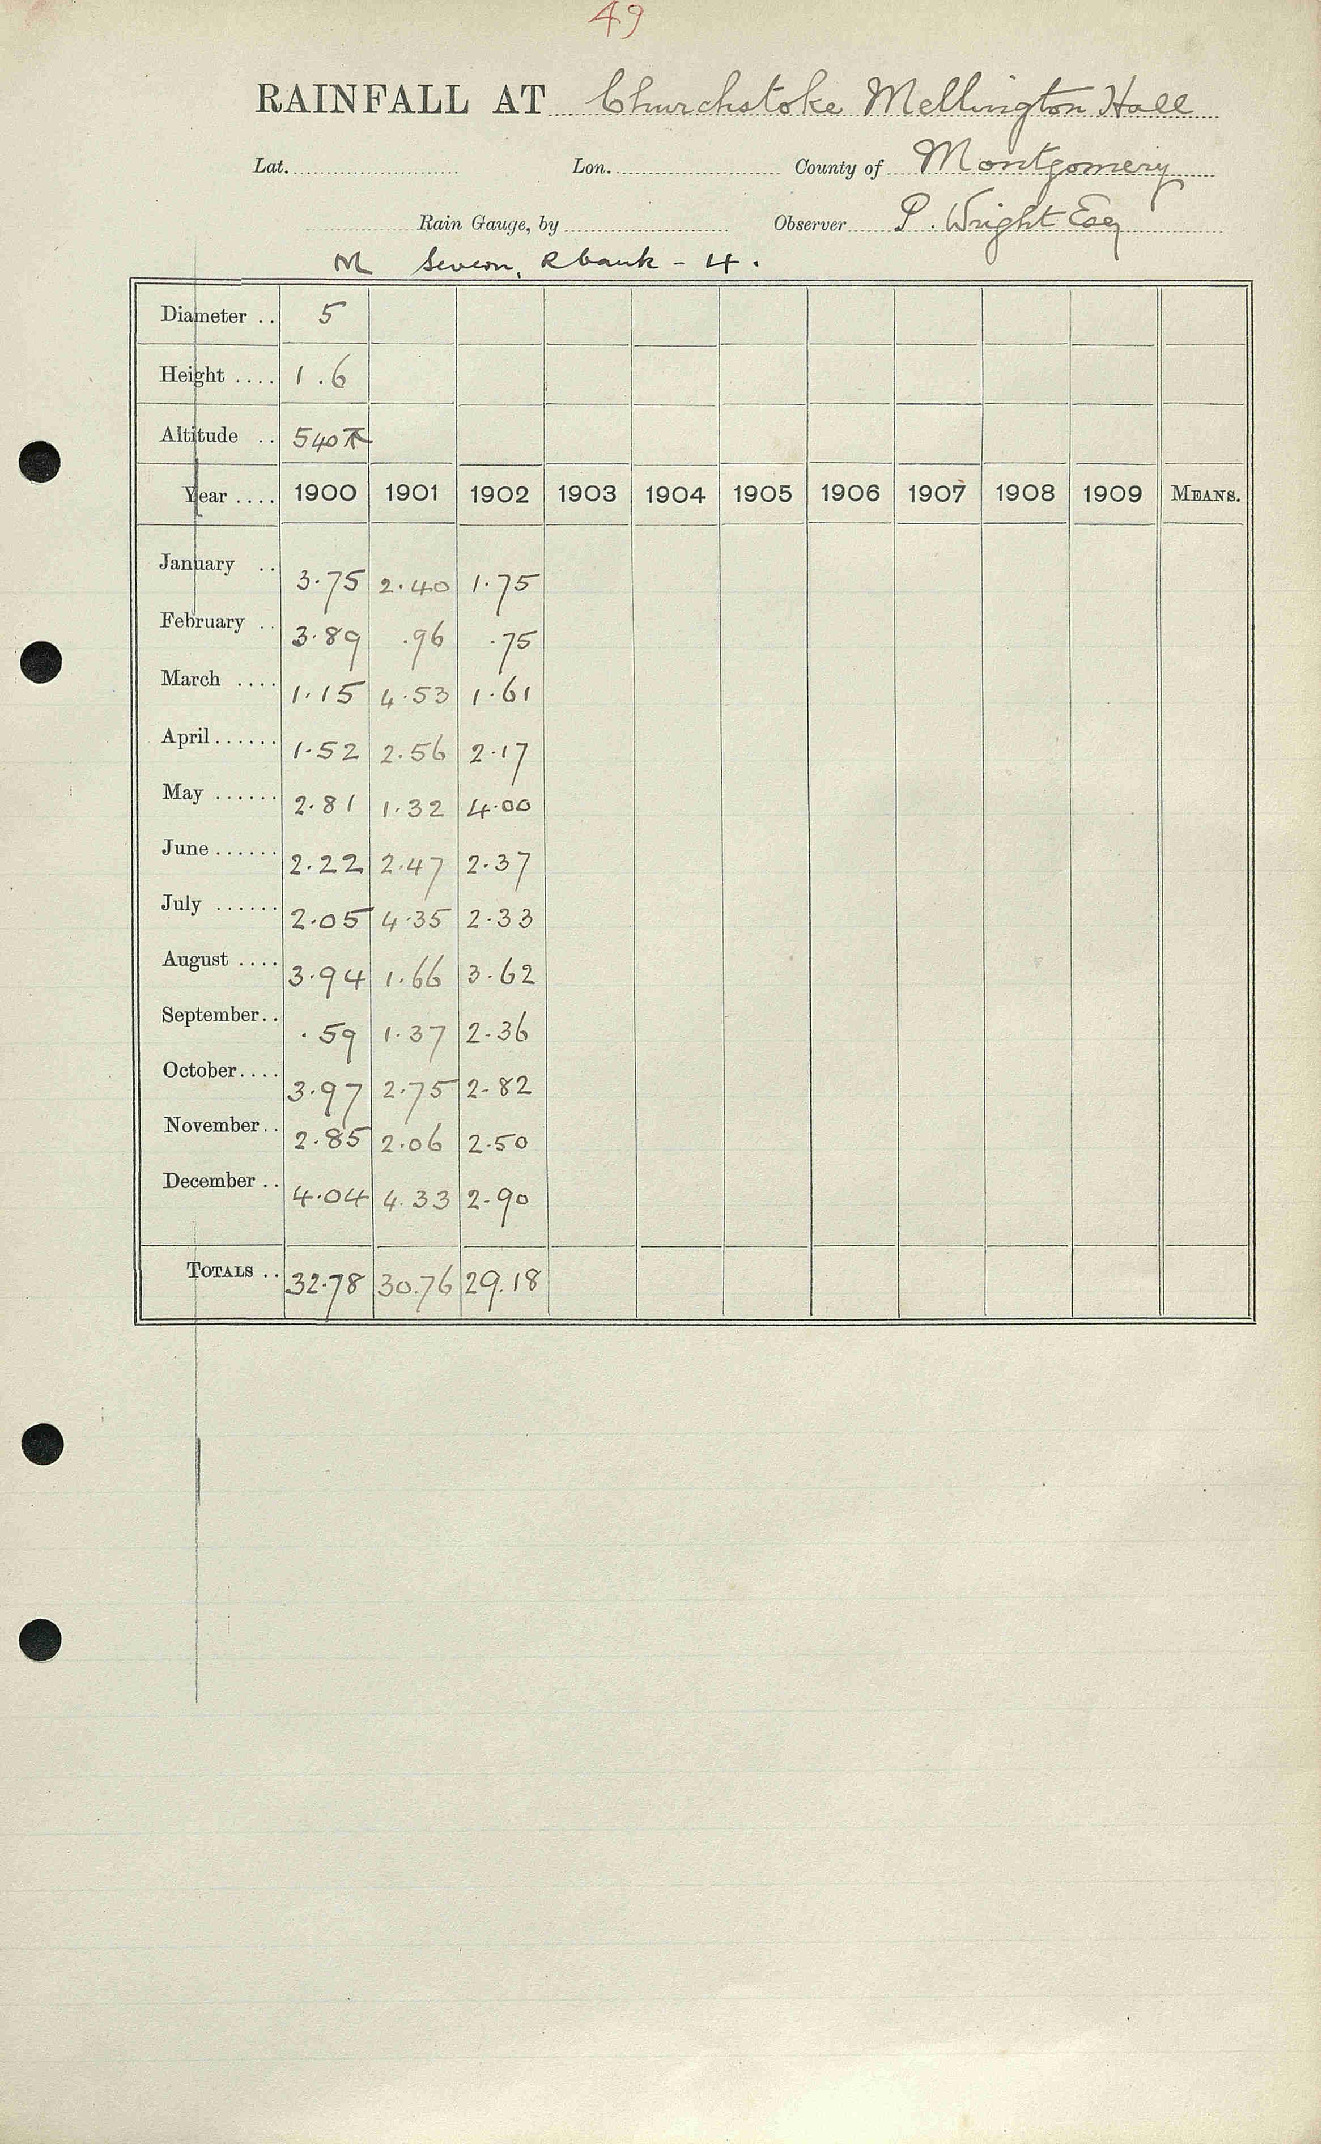 49
RAINFALL AT Churchstoke Mellington Hall
Lat. Lon. County of Montgomery
Rain Gauge, by Observer P. Wright Esq
M Severn, R bank - 4.
Diameter .. 5
Height .... 1.6
Altitude .. 540 ft
Year .... 1900 1901 1902 1903 1904 1905 1906 1907 1908 1909 MEANS.
January .. 3.75 2.40 1.75
February .. 3.89 .96 .75
March .... 1.15 4.53 1.61
April...... 1.52 2.56 2.17
May ...... 2.81 1.32 4.00
June...... 2.22 2.47 2.37
July ...... 2.05 4.35 2.33
August .... 3.94 1.66 3.62
September.. .59 1.37 2.36
October.... 3.97 2.75 2.82
November.. 2.85 2.06 2.50
December .. 4.04 4.33 2.90
TOTALS .. 32.78 30.76 29.18